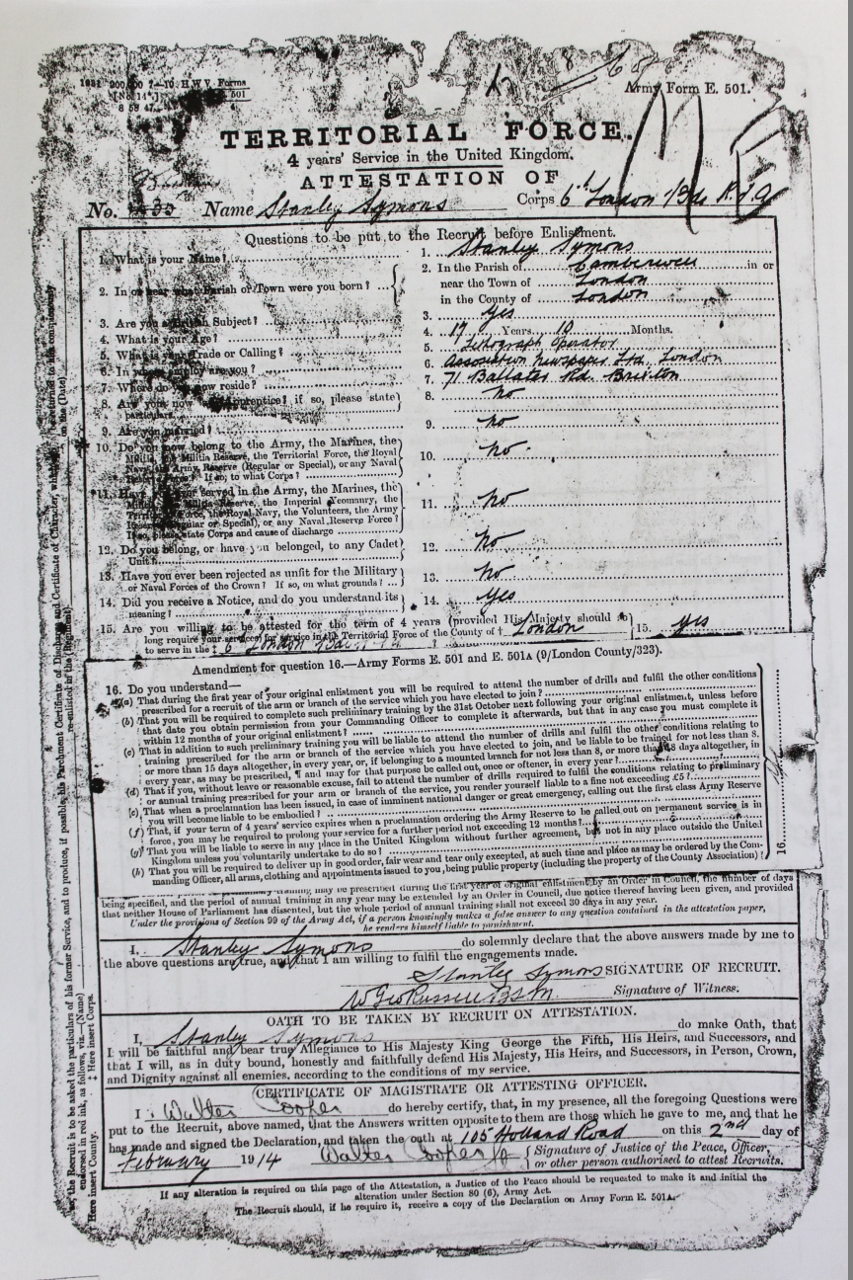 Army Form E. 501.
TERRITORIAL FORCE.
4 years' Service in the United Kingdom.
ATTESTATION OF
No. Name Stanley Symons Corps 6th London Bde R.F.A
Questions to be put to the Recruit before Enlistment.
1. What is your Name? 1. Stanley Symons
2. In or near what Parish or Town were you born? 2. In the Parish of Camberwell in or
near the Town of London
in the County of London
3. Are you a British Subject? 3. Yes
4. What is your Age? 4. 17 Years 10 Months.
5. What is your Trade or Calling? 5. Lithograph Operator
6. In whose employ are you? 6. Association Newspaper Ltd. London
7. Where do you now reside? 7. 71 Ballater Rd. Brixton
8. Are you now Apprentice? if so, please state 8. No
particulars
9. Are you married? 9. No
10. Do you now belong to the Army, the Marines, the
Militia, the Militia Reserve, the Territorial Force, the Royal
Navy, the Army Reserve (Regular or Special), or any Naval
Reserve Force? If so, to what Corps? 10. No.
11. Have you ever served in the Army, the Marines, the
Militia, the Militia Reserve, the Imperial Yeomanry, the
Territorial Force, the Royal Navy, the Volunteers, the Army
Reserve (Regular or Special), or any Naval Reserve Force?
If so, please state Corps and cause of discharge 11. No
12. Do you belong, or have you belonged, to any Cadet
Unit? 12. No
13. Have you ever been rejected as unfit for the Military
or Naval Forces of the Crown? If so, on what grounds? 13. No
14. Did you receive a Notice, and do you understand its
meaning? 14. Yes
15. Are you willing to be attested for the term of 4 years (provided His Majesty should so
long require your services) for service in the Territorial Force of the County of † London 15. yes
to serve in the ‡ 6 London
Amendment for question 16.—Army Forms E. 501 and E. 501A (9/London County/323).
16. Do you understand—
(a) That during the first year of your original enlistment you will be required to attend the number of drills and fulfil the other conditions
prescribed for a recruit of the arm or branch of the service which you have elected to join?
(b) That you will be required to complete such preliminary training by the 31st October next following your original enlistment, unless before
that date you obtain permission from your Commanding Officer to complete it afterwards, but that in any case you must complete it
within 12 months of your original enlistment?
(c) That in addition to such preliminary training you will be liable to attend the number of drills and fulfil the other conditions relating to
training prescribed for the arm or branch of the service which you have elected to join, and be liable to be trained for not less than 8,
or more than 15 days altogether, in every year, or, if belonging to a mounted branch for not less than 8, or more than 18 days altogether, in
every year, as may be prescribed, ¶ and may for that purpose be called out, once or oftener, in every year?
(d) That if you, without leave or reasonable excuse, fail to attend the number of drills required to fulfil the conditions relating to preliminary
or annual training prescribed for your arm or branch of the service, you render yourself liable to a fine not exceeding £5?
(e) That when a proclamation has been issued, in case of imminent national danger or great emergency, calling out the first class Army Reserve
you will become liable to be embodied?
(f) That, if your term of 4 years' service expires when a proclamation ordering the Army Reserve to be called out on permanent service is in
force, you may be required to prolong your service for a further period not exceeding 12 months?
(g) That you will be liable to serve in any place in the United Kingdom without further agreement, but not in any place outside the United
Kingdom unless you voluntarily undertake to do so?
(h) That you will be required to deliver up in good order, fair wear and tear only excepted, at such time and place as may be ordered by the Com-
manding Officer, all arms, clothing and appointments issued to you, being public property (including the property of the County Association)?
16.
training may be prescribed during the first year of original enlistment by an Order in Council, the number of days
being specified, and the period of annual training in any year may be extended by an Order in Council, due notice thereof having been given, and provided
that neither House of Parliament has dissented, but the whole period of annual training shall not exceed 30 days in any year.
Under the provisions of Section 99 of the Army Act, if a person knowingly makes a false answer to any question contained in the attestation paper,
he renders himself liable to punishment.
I, Stanley Symons do solemnly declare that the above answers made by me to
the above questions are true, and that I am willing to fulfil the engagements made.
Stanley Symons SIGNATURE OF RECRUIT.
W Geo Russell BSM Signature of Witness.
OATH TO BE TAKEN BY RECRUIT ON ATTESTATION.
I, Stanley Symons do make Oath, that
I will be faithful and bear true Allegiance to His Majesty King George the Fifth, His Heirs, and Successors, and
that I will, as in duty bound, honestly and faithfully defend His Majesty, His Heirs, and Successors, in Person, Crown,
and Dignity against all enemies, according to the conditions of my service.
CERTIFICATE OF MAGISTRATE OR ATTESTING OFFICER.
I Walter Cooper do hereby certify, that, in my presence, all the foregoing Questions were
put to the Recruit, above named, that the Answers written opposite to them are those which he gave to me, and that he
has made and signed the Declaration, and taken the oath at 105 Holland Road on this 2nd day of
February 1914 Walter Cooper Signature of Justice of the Peace, Officer,
or other person authorised to attest Recruits.
If any alteration is required on this page of the Attestation, a Justice of the Peace should be requested to make it and initial the
alteration under Section 80 (6), Army Act.
The Recruit should, if he require it, receive a copy of the Declaration on Army Form E. 501A.
the Recruit is to be asked the particulars of his former Service, and to produce, if possible, his Parchment Certificate of Discharge and Certificate of Character,
endorsed in red ink, as follows, viz.—(Name) re-enlisted in the (Regiment) on the (Date)
Here insert County. ‡ Here insert Corps.